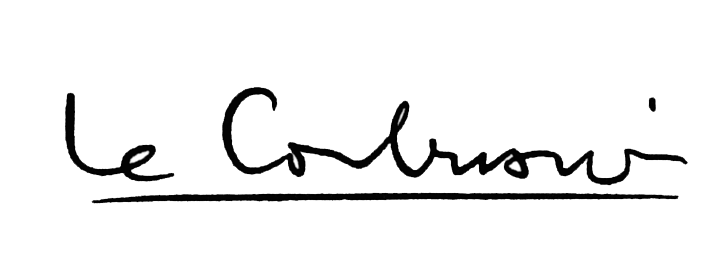 Le Corbusier